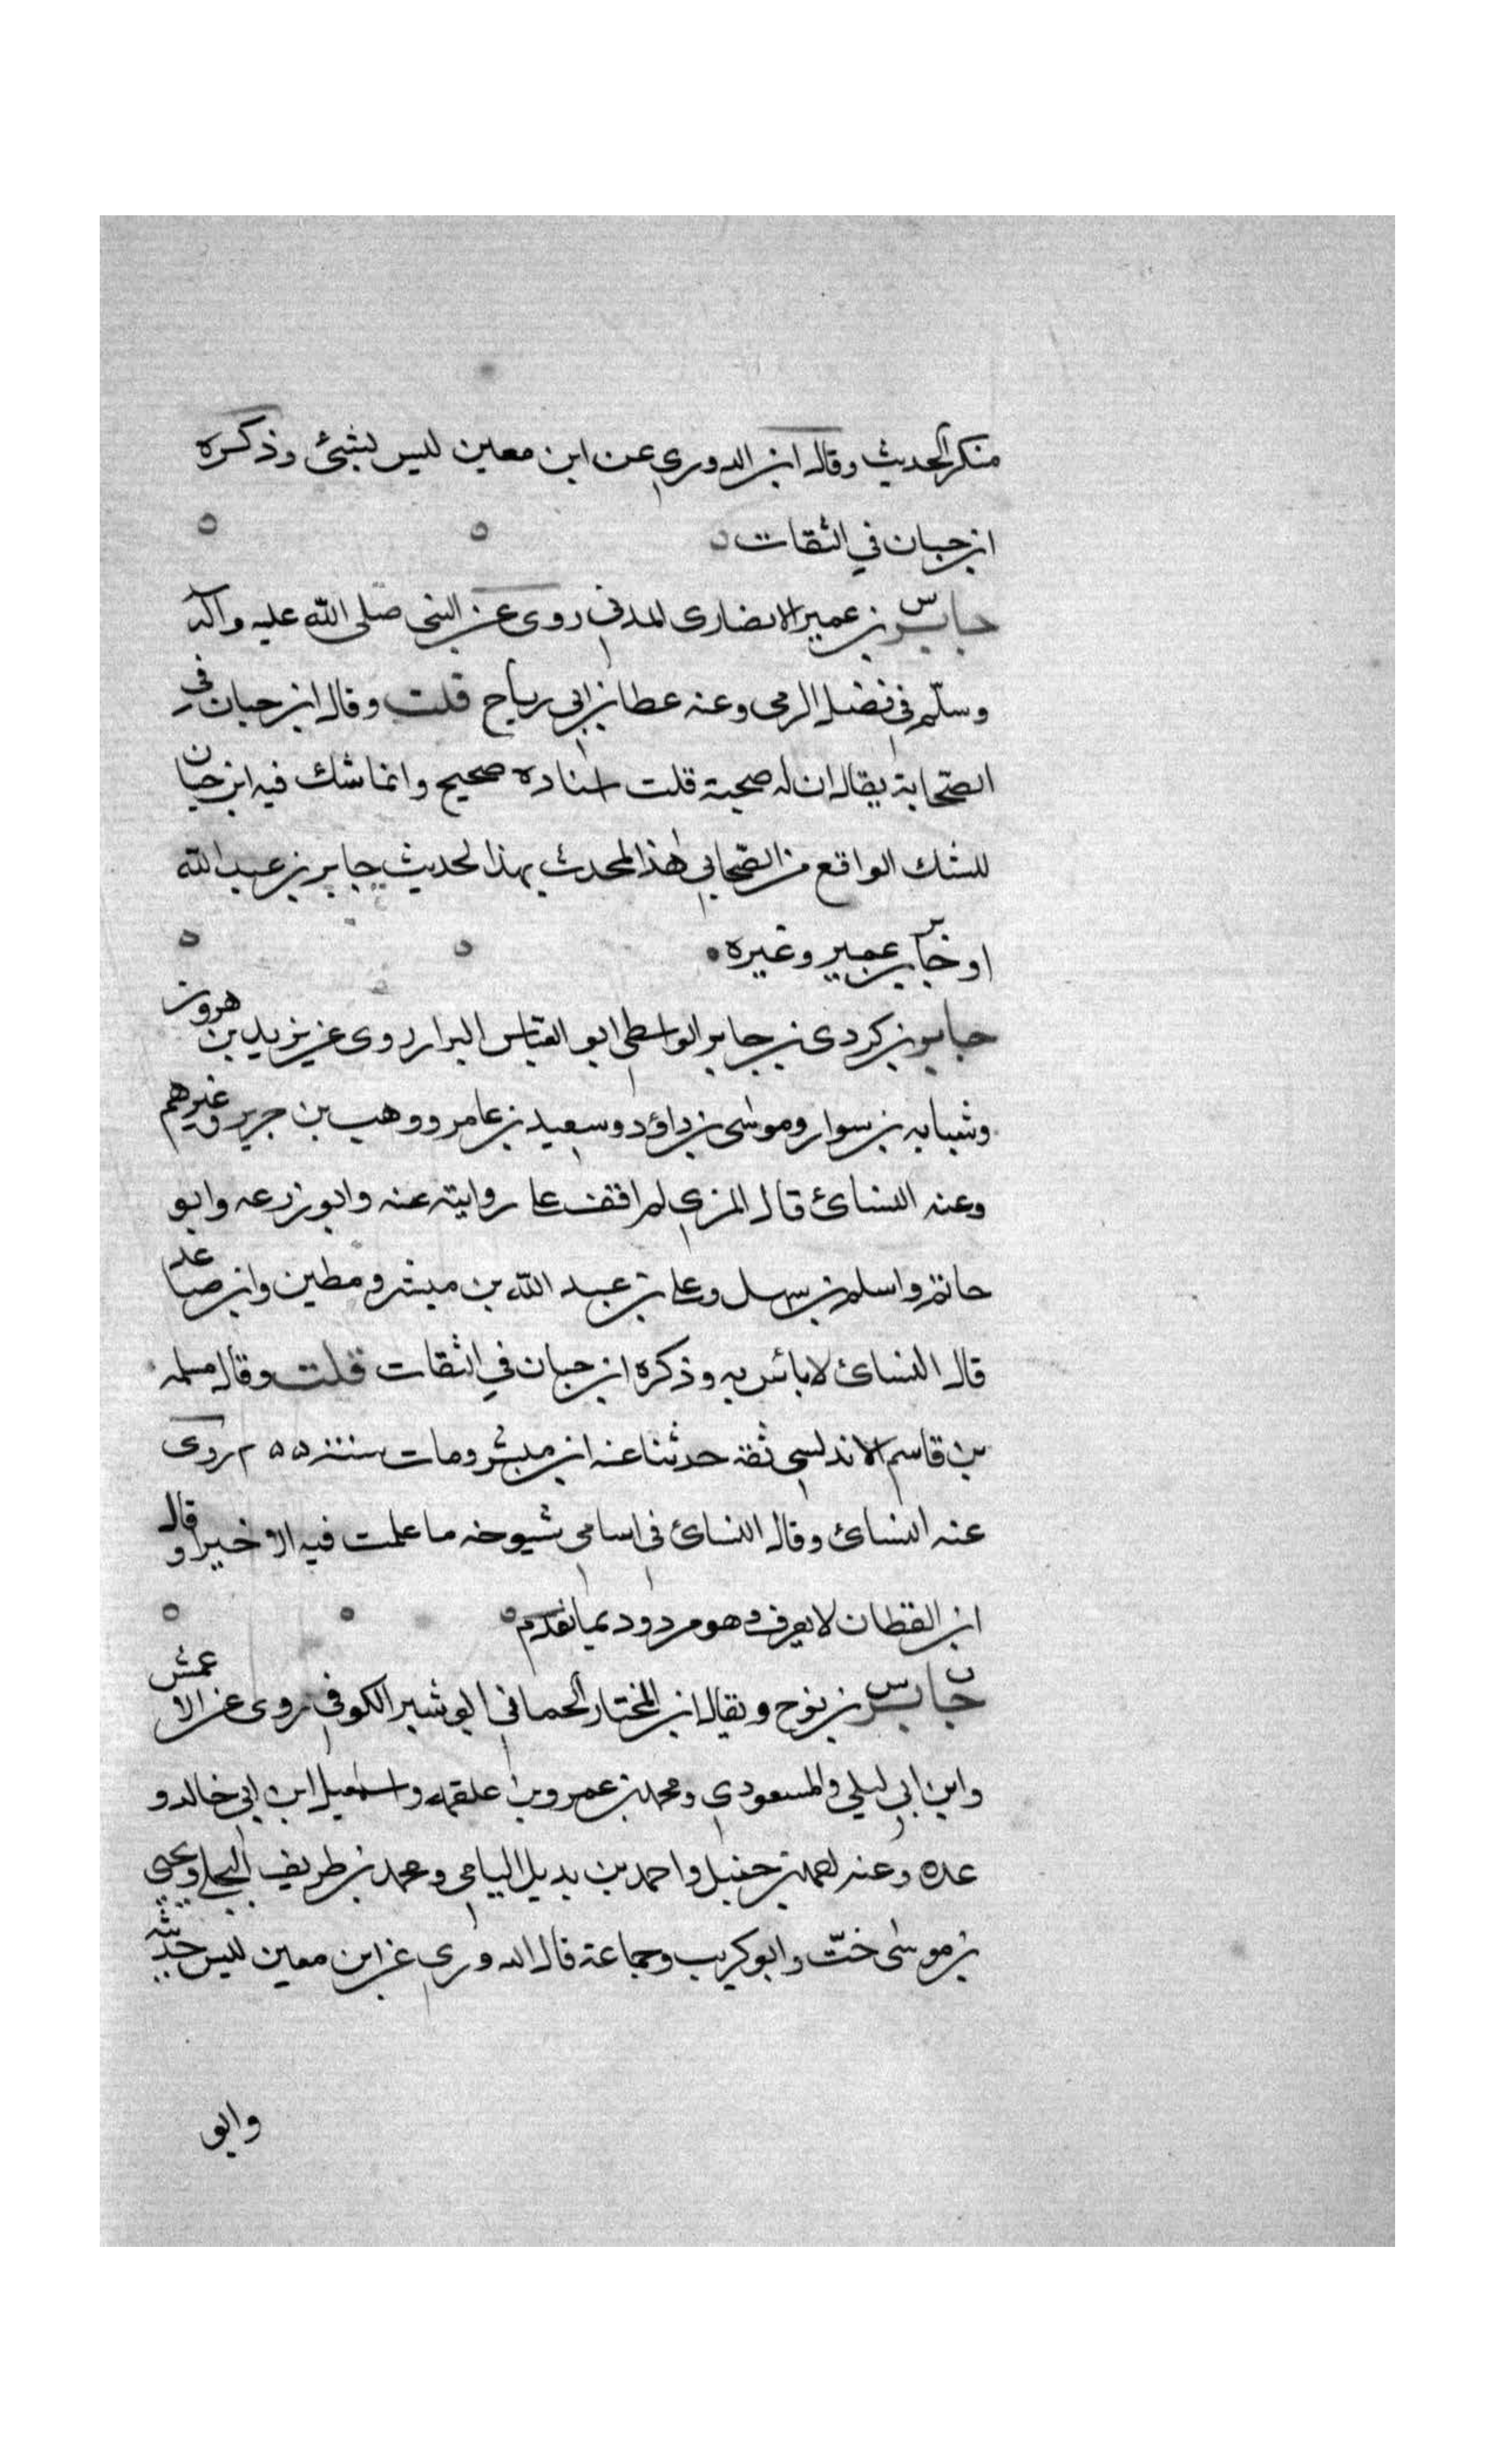 منكر الحديث وقال ابن الدوري عن ابن معين ليس بشئ وذكره
ابن حبان في الثقات
جابر س بن عمير الانصاري المدني روى عن النبي صلى الله عليه وآله
وسلم في فضل الرمي وعنه عطا بن ابي رباح قلت وقال ابن حبان في
الصحابة يقال ان له صحبة قلت اسناده صحيح وانما شك فيه ابن حبان
للشك الواقع من الصحابي هذا المحدث بهذا الحديث جابر بن عبد الله
او جابر بن عمير وغيره
جابر بن كردي بن جابر الواسطي ابو العباس البزار روى عن يزيد بن هرون
وشبابه بن سوار وموسى بن داؤد وسعيد بن عامر ووهب بن جرير وغيرهم
وعنه النسائ قال المزي لم اقف على روايته عنه وابو زرعه وابو
حاتم واسلم بن سهل وعلى بن عبد الله بن مبشر ومطين وابن صاعد
قال النسائ لا بائس به وذكره ابن حبان في الثقات قلت وقال مسلمه
بن قاسم الاندلسي ثقة حدثنا عنه ابن مبشر ومات سنة ٢٥٥ روى
عنه النسائ وقال النسائ في اسامي شيوخه ما علمت فيه الا خيرا وقال
ابن القطان لا يعرف وهو مردود بما تقدم
جابر ت س بن نوح ويقال ابن المختار الحماني ابو شبير الكوفي روى عن الاعمش
وابن ابي ليلى والمسعودي ومحمد بن عمرو بن علقمه واسمعيل ابن ابي خالد و
عده وعنه احمد بن حنبل واحمد بن بديل اليامي ومحمد بن طريف البجلي ويحيى
بن موسى ختّ وابو كريب وجماعة قال الدوري عن ابن معين ليس حديثه
وابو